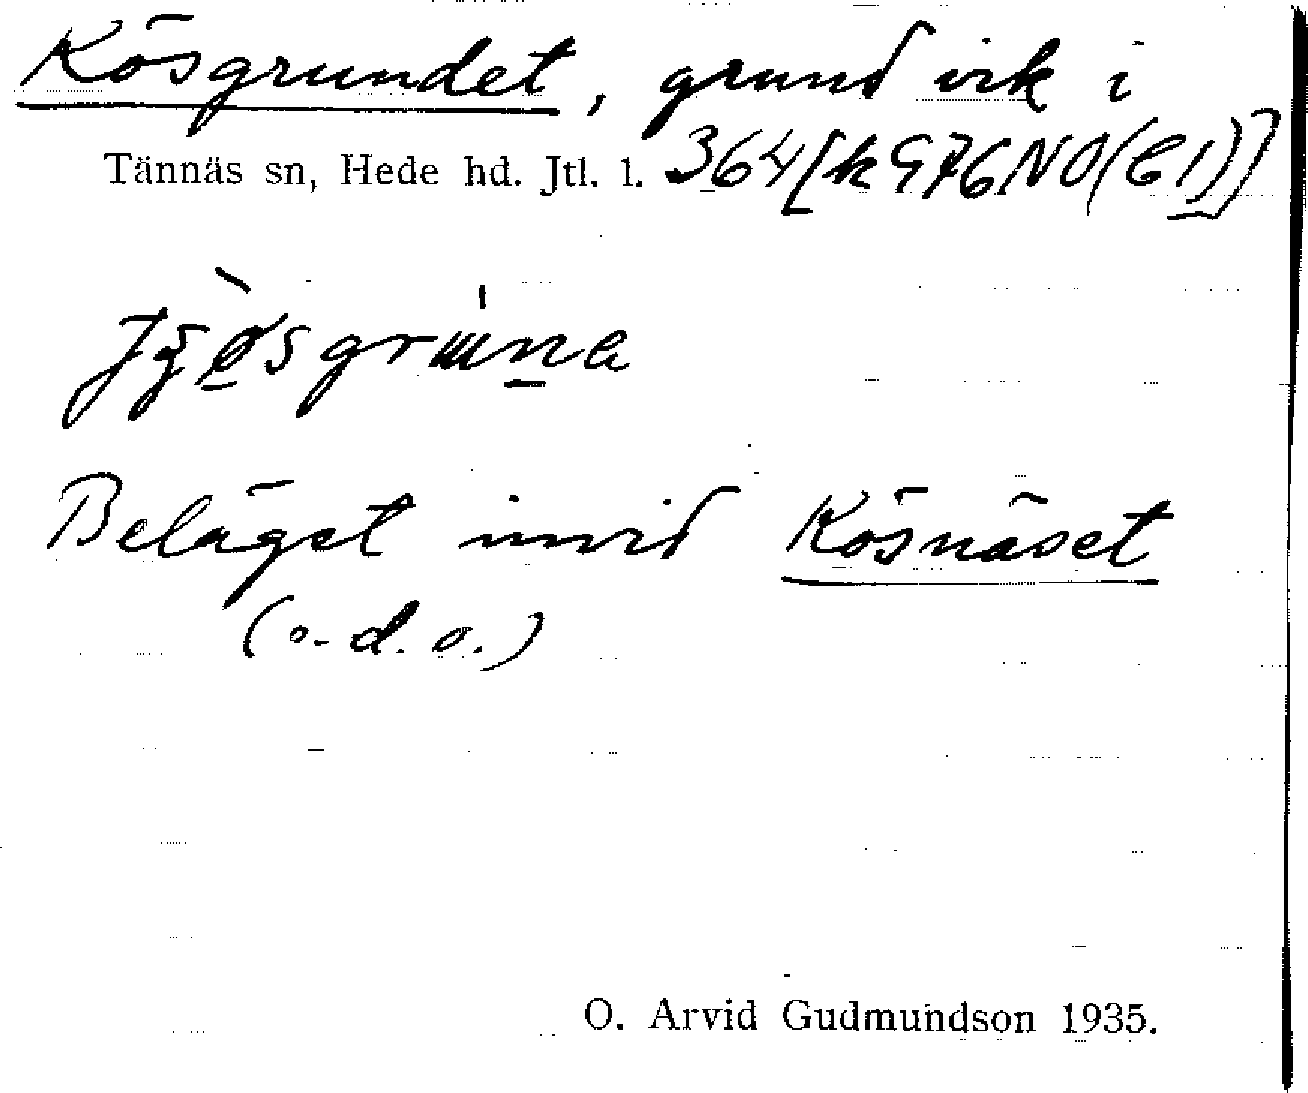 Kösgrundet, grund vik i
Tännäs sn, Hede hd. Jtl. l. 364[k 976 NO(C1)]
Beläget invid Kösnäset
(o.d.o.)
O. Arvid Gudmundson 1935.